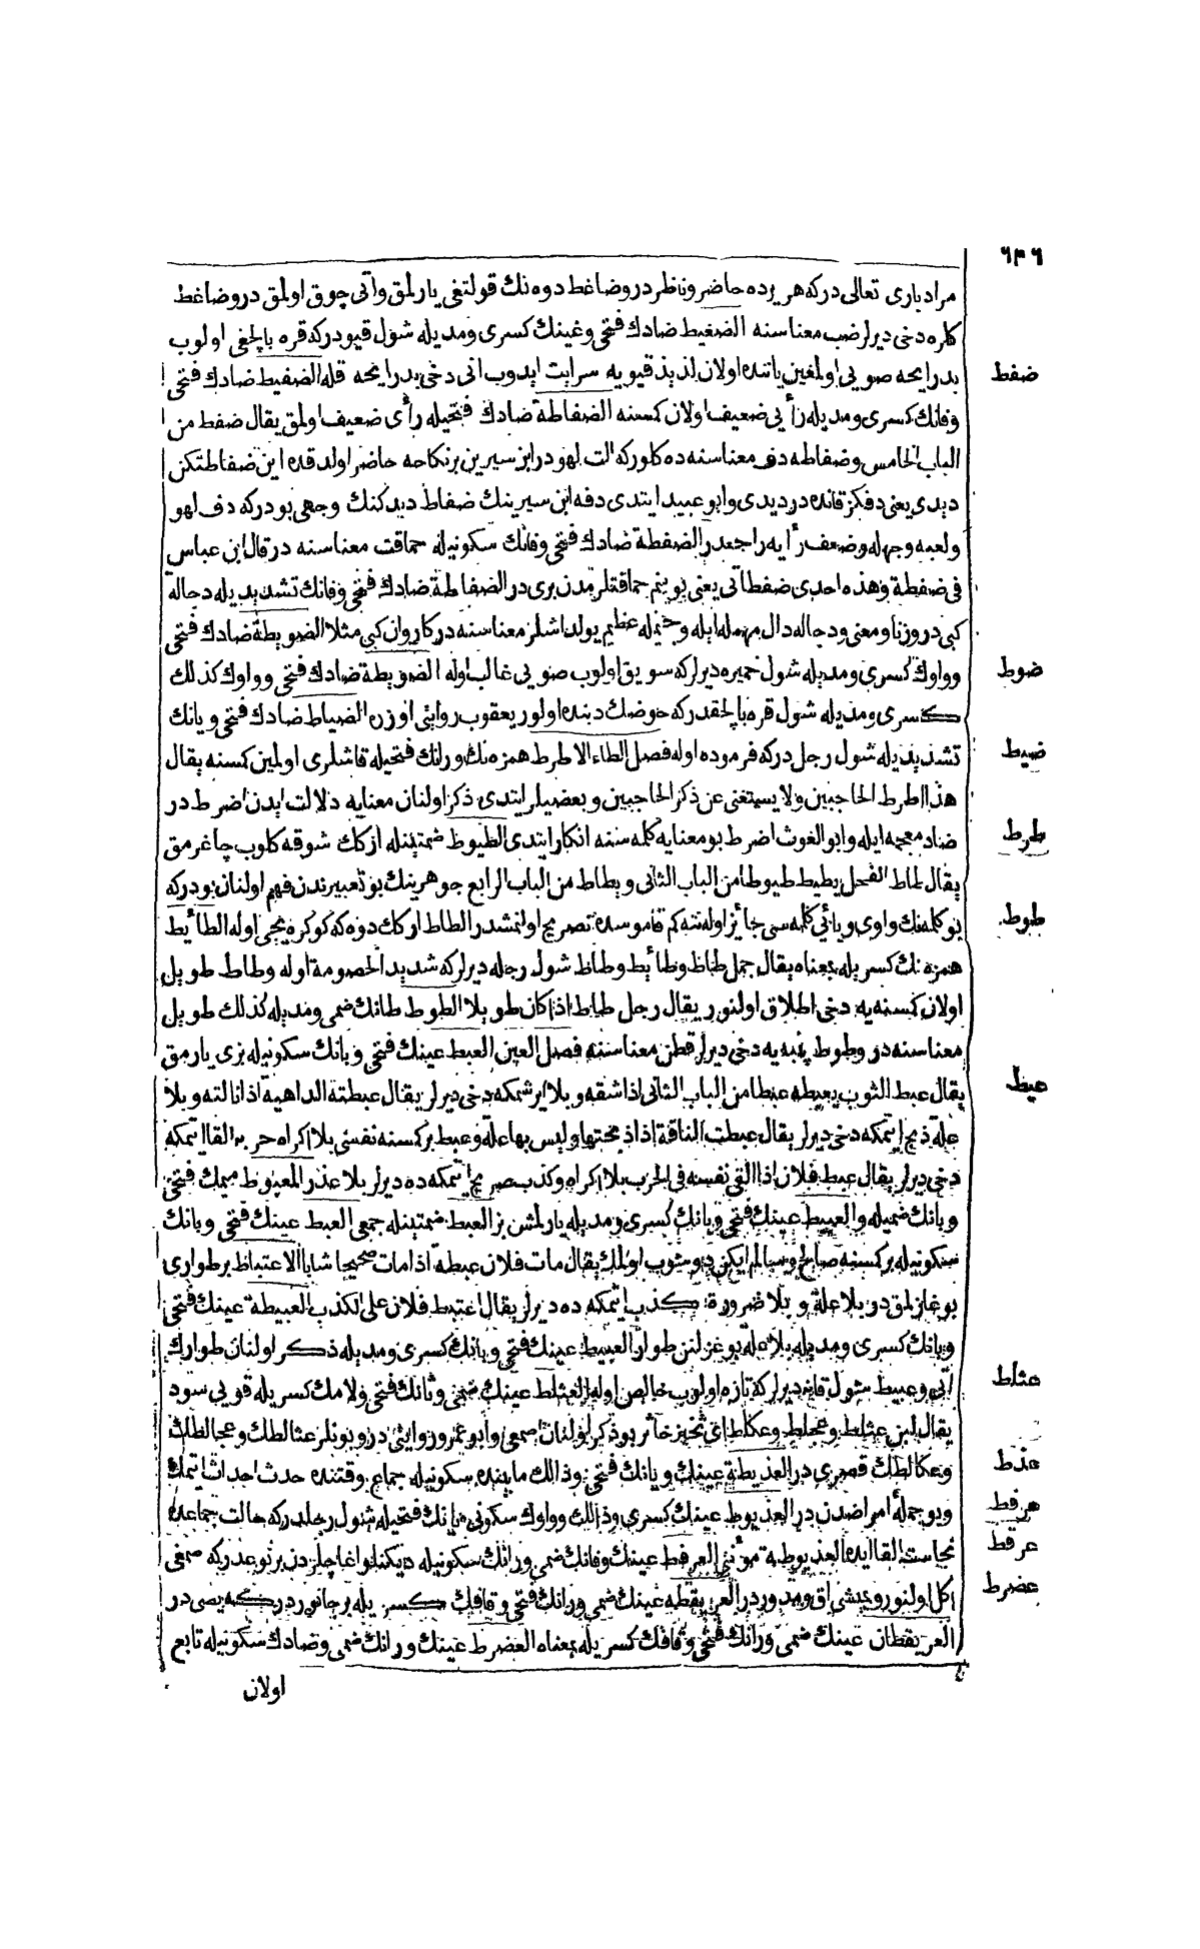 ٦٣٦
مراد باری تعالی در كه هر یرده حاضر و ناظر در و ضاغط دوه نك قولتغی یارلمق و آتی چوق اولمق در و ضاغط
كلره دخی دیرلر ضب معناسنه الضغیط ضادك فتحی و غینك كسری و مدیله شول قیودر كه قره بالچغی اولوب
ضفط
بد رایحه صویی اولمغین یاننده اولان لذیذ قیویه سرایت ایدوب انی دخی بد رایحه قله الضفیط ضادك فتحی
و فانك كسری و مدیله رأیی ضعیف اولان كمسنه الضفاطة ضادك فتحیله رأی ضعیف اولمق یقال ضفط من
الباب الخامس و ضفاطه دف معناسنه ده كلور كه آلت لهو در ابن سیرین بر نكاحه حاضر اولدقده این ضفاطتكن
دیدی یعنی دفكز قانده در دیدی و ابو عبید ایتدی دفه ابن سیرینك ضفاط دیدكنك وجهی بودر كه دف لهو
ولعبه وجهله و ضعف رأیه راجعدر الضفطة ضادك فتحی و فانك سكونیله حماقت معناسنه در قال ابن عباس
فی ضفطة و هذه احدی ضفطاتی یعنی بو بنم حماقتلرمدن بری در الضفاطة ضادك فتحی و فانك تشدیدیله دجالة
كبی در وزنا و معنی و دجاله دال مهمله ایله و جیمله عظیم یولداشلر معناسنه در كاروان كبی مثلا الضویطة ضادك فتحی
ضوط
و واوك كسری و مدیله شول خمیره دیرلر كه سویق اولوب صویی غالب اوله الضویطة ضادك فتحی و واوك كذلك
كسری و مدیله شول قره بالچقدر كه حوضك دبنده اولور یعقوب روایتی اوزره الضیاط ضادك فتحی و یانك
ضیط
تشدیدیله شول رجل در كه فرموده اوله فصل الطاء الاطرط همزه نك و رانك فتحیله قاشلری اولمین كمسنه یقال
هذا اطرط الحاجبین ولا یستغنی عن ذكر الحاجبین و بعضیلر ایتدی ذكر اولنان معنایه دلالت ایدن اضرط در
طرط
ضاد معجمه ایله و ابو الغوث اضرط بو معنایه كلمه سنه انكار ایتدی الطیوط ضمتینله اركك شوقه كلوب چاغرمق
یقال طاط الفحل یطیط طیوطا من الباب الثانی و یطاط من الباب الرابع جوهرینك بو تعبیرندن فهم اولنان بودر كه
طوط
بو كلمه نك واوی و یائی كلمه سی جائز اوله نته كم قاموسده تصریح اولنمشدر الطاط اركك دوه كه كوكره یجی اوله الطائط
همزه نك كسریله بمعناه یقال جمل طاط و طائط و طاط شول رجله دیرلر كه شدید الخصومة اوله و طاط طویل
اولان كمسنه یه دخی اطلاق اولنور یقال رجل طاط اذا كان طویلا الطوط طانك ضمی و مدیله كذلك طویل
معناسنه در و طوط پنبه یه دخی دیرلر قطن معناسنه فصل العین العبط عینك فتحی و بانك سكونیله بزی یارمق
عبط
یقال عبط الثوب یعبطه عبطا من الباب الثانی اذا شقه و بلا ایرشمكه دخی دیرلر یقال عبطته الداهیة اذا نالته و بلا
علة ذبح ایتمكه دخی دیرلر یقال عبطت الناقة اذا ذبحتها و لیس بها علة و عبط بر كمسنه نفسنی بلا اكراه حربه القا ایتمكه
دخی دیرلر یقال عبط فلان اذا القی نفسه فی الحرب بلا اكراه و كذب صریح ایتمكه ده دیرلر بلا عذر المعبوط میمك فتحی
و بانك ضمیله و العبیط عینك فتحی و بانك كسری و مدیله یارلمش بز العبط ضمتینله جمعی العبط عینك فتحی و بانك
سكونیله بر كمسنه صاغ و سالم ایكن دوشوب اولمك یقال مات فلان عبطة اذا مات صحیحا شابا الاعتباط بر طواری
بوغازلمق در بلا علة و بلا ضرورة كذب ایتمكه ده دیرلر یقال اعتبط فلان علی الكذب العبیطة عینك فتحی
و بانك كسری و مدیله بلا علة بوغزلنن طوار العبیط عینك فتحی و بانك كسری و مدیله ذكر اولنان طوارك
عثلط
اتی و عبیط شول قانه دیرلر كه تازه اولوب خالص اوله العثلط عینك ضمی و ثانك فتحی و لامك كسریله قویی سود
یقال لبن عثلط و عجلط و عكلط ای ثخین خاثر بو ذكر اولنان اصمعی و ابو عمرو روایتی در و بونلر عثالطك و عجالطك
عذط
و عكالطك قصری در العذیطة عینك و یانك فتحی و ذالك مابینده سكونیله جماع وقتنده حدث احداث ایتمك
عرفط
و بو جمله امراضدن در العذیوط عینك كسری و ذالك و واوك سكونی یانك فتحیله شول رجلدر كه حالت جماعده
عرقط
نجاست القا ایده العذیوطة مؤنثی العرفط عینك و فانك ضمی و رانك سكونیله دیكنلو اغاجلردن بر نوعدر كه صمغی
عضرط
اكل اولنور و یمشی اق و مدور در العریقطة عینك ضمی و رانك فتحی و قافك كسریله بر جانوردر كه یصی در
العریقطان عینك ضمی و رانك فتحی و قافك كسریله بمعناه العضرط عینك و رانك ضمی و ضادك سكونیله تابع
اولان